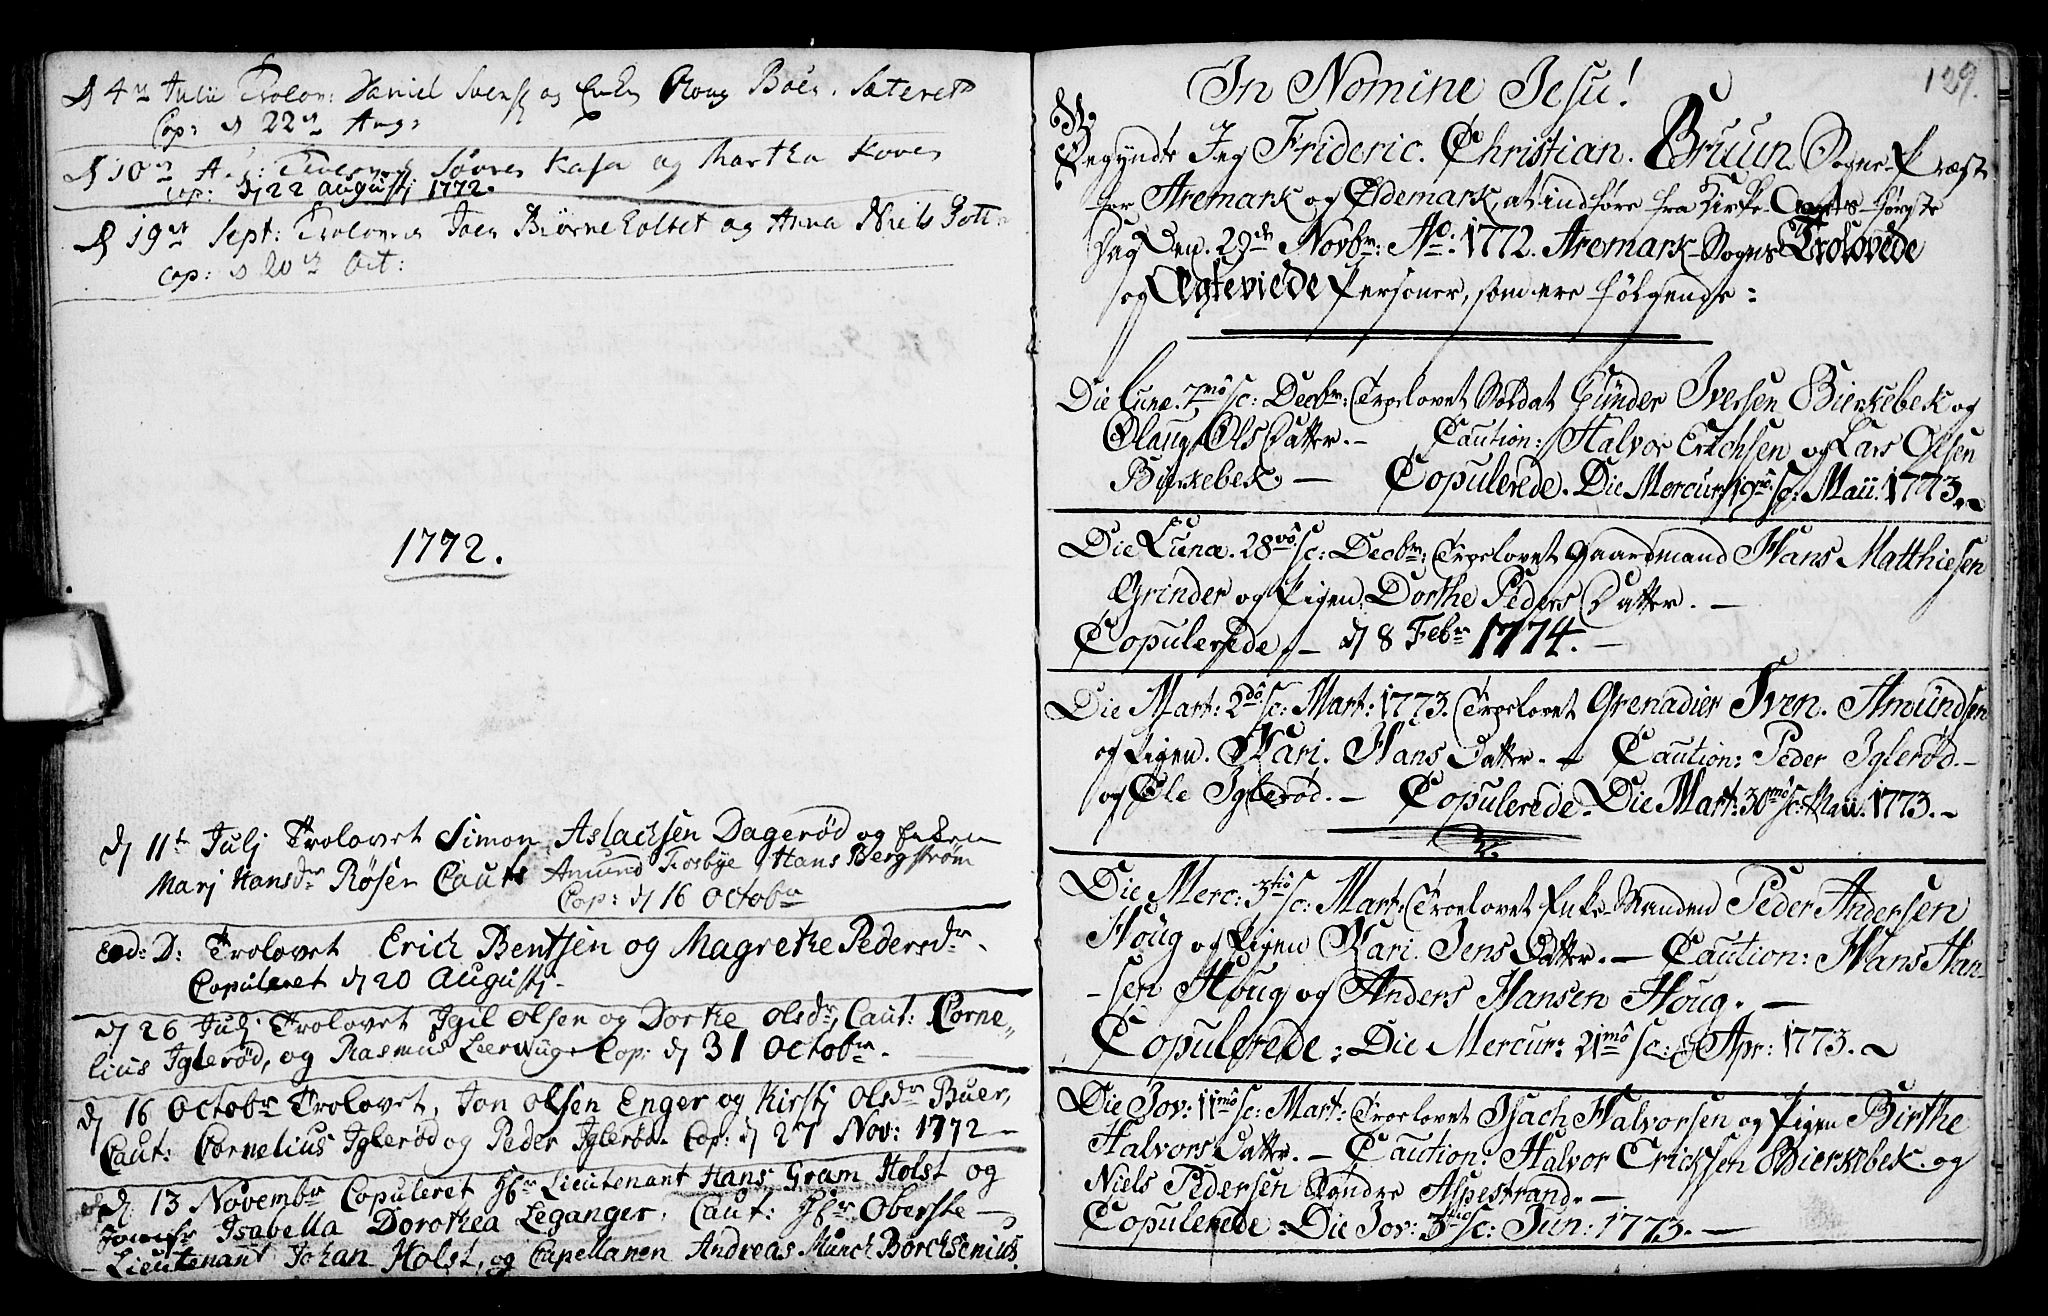 d 4de Julii Trolov: Daniel Svensh og Enken Boer. Sæteret
Cop: d 22de Aug:
d 10de Aug: Søvren Kasa og Martha Koven
Cop: d 22 Augustj 1772.
d 19de Sept: Troloved Joen Biørneholtet og Anna Niels Dott:
cop: d 20de Oct:
1772.
d 11te Julj Trolovet Simon Aslachsen Dagerød og Enken
Marj Hansdr Røser Caut: Amund Fosbye Hans Bergstrøm
Cop: d 16 Octobr
Eod: D: Trolovet Erich Bentsen og Magrethe Pedersdr.
Copuleret d 20 Augustj.
d 26 Julj Trolovet Igil Olsen og Dorthe Olsdr, Caut: Corne„
lius Iglerød, og Rasmus Leerwüg Cop: d 31 Octobr.
d 16 Octobr Trolovet, Jon Olsen Enger og Kirstj Olsdr Buer,
Caut: Cornelius Iglerød og Peder Iglerød. Cop: d 27 Nov: 1772 –
d. 13 Novembr Copuleret Hr Lieutenant Hans Gram Holst og
Jomfr Isabella Dorothea Leganger, Caut: Hr Oberste –
– Lieutenant Johan Holst, og Capellanen Andreas Munch Borchsenius.
129.
In Nomine Jesu!
Begyndte Jeg Frideric. Christian. Bruun Sogne-Præst
for Aremark og Øidemark, at indføre fra Kirke-Aarets første
Dag Den. 29de Novbr: Ao: 1772. Aremark-Sogns Trolovede
og Ægteviede Personer, som ere følgende:
Die Lunæ. 7mo sc: Decbr: Troelovet Soldat Günder Iversen Bierkebek og
Olaug Ols Datter. – Caution: Halvor Erichsen og Lars Olsen
Bierkebek. – Copulerede. Die Mercur: 19mo sc: Maii. 1773.
Die Lunæ. 28vo sc: Decbr: Troelovet Gaardmand Hans Matthiesen
Grinder og Pigen. Dorthe Peders Datter. –
Copulerede. – d 8 Febr 1774. –
Die Mart: 2do sc: Mart: 1773. Troelovet Grenadier Sven. Amündsen
og Pigen. Kari. Hans Datter. – Caution: Peder Iglerød. –
og Ole Iglerød. – Copulerede. Die Mart: 30mo sc: Maii. 1773. –
Die Merc: 3tio sc: Mart. Troelovet Enke-Manden Peder Andersen
Houg og Pigen Kari. Jens Datter. – Caution: Hans Han
-sen Houg og Anders Hansen Houg. –
Copulerede: Die Mercur: 21mo sc: Apr: 1773.
Die Jov: 11mo sc: Mart: Troelovet Isach Halvorsen og Pigen Birthe
Halvors Datter. – Caution: Halvor Ericksen Bierkebek. og
Niels Pedersen Søndre Aspestrand. –
Copulerede: Die Jov: 3tio sc: Jun: 1773. –